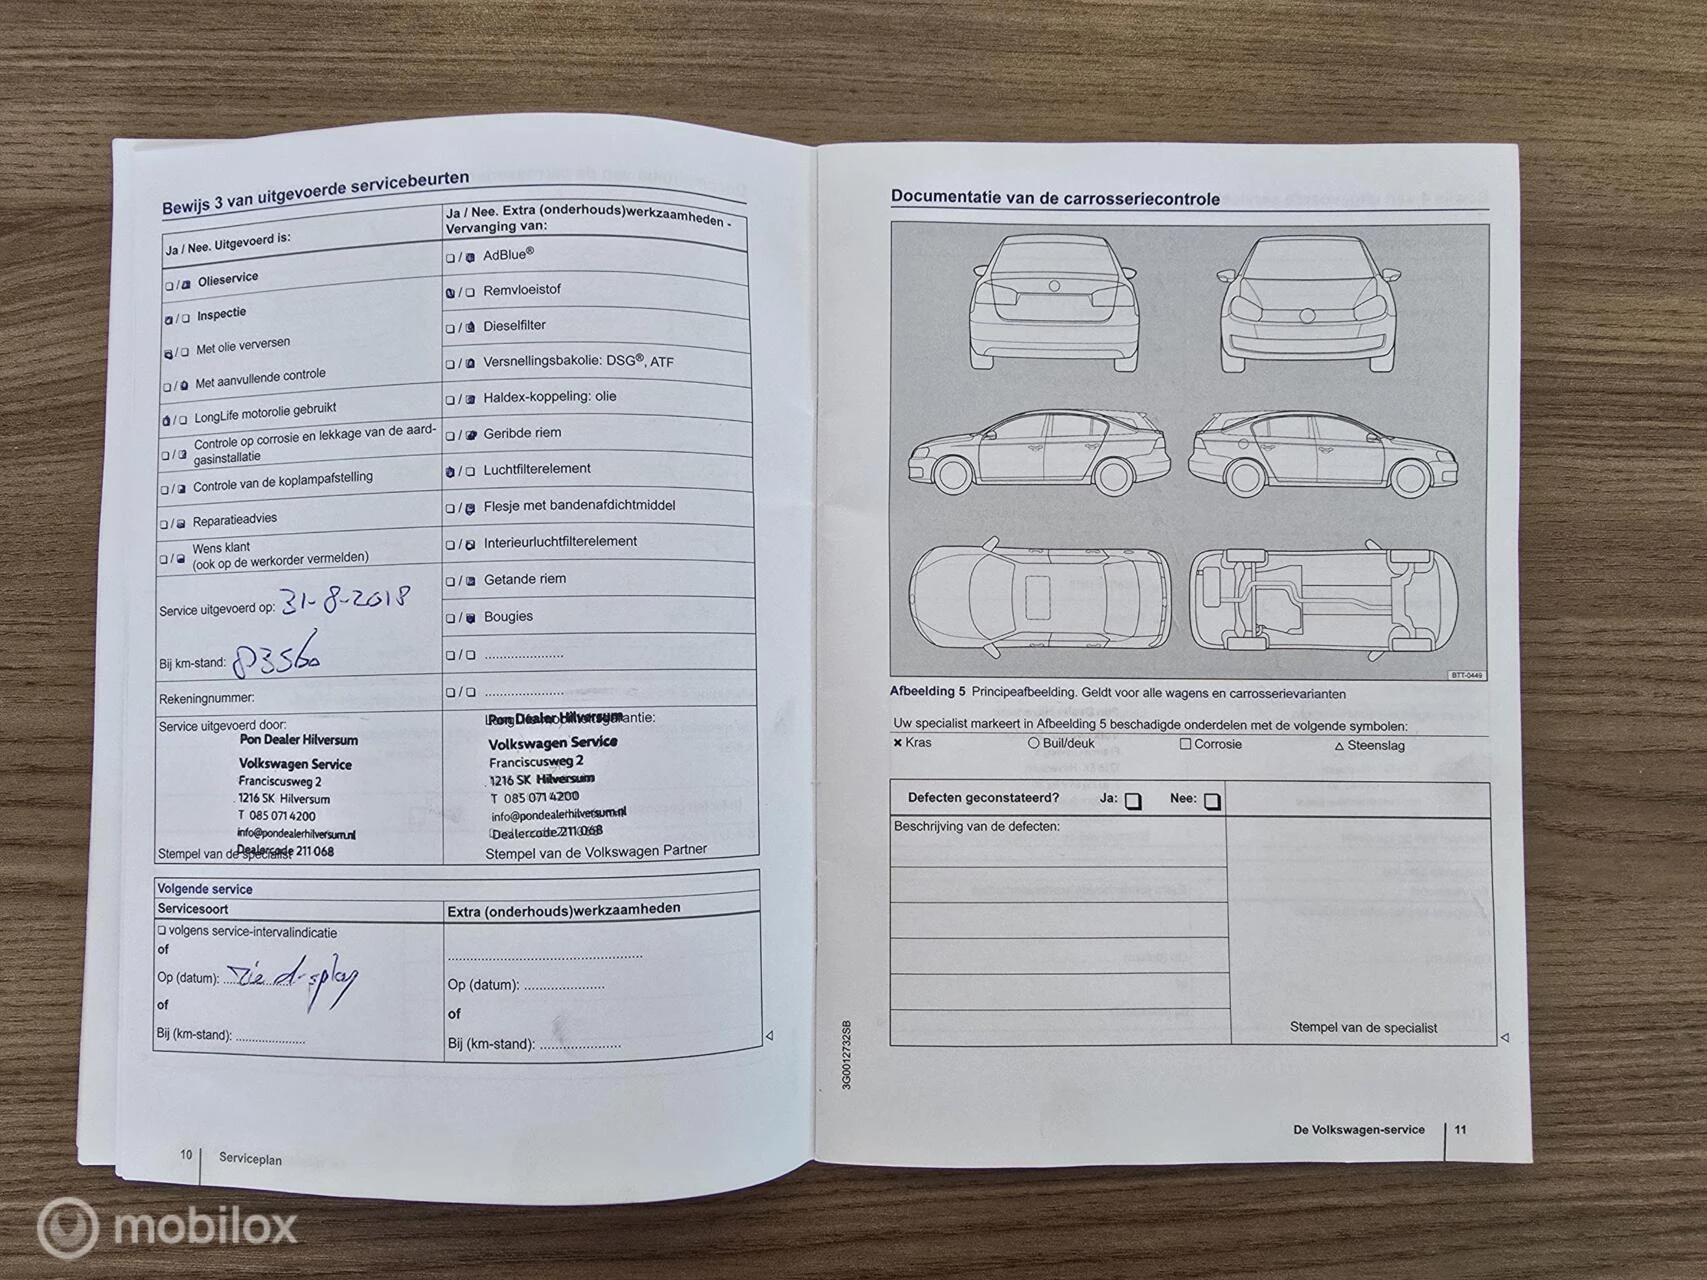 Bewijs 3 van uitgevoerde servicebeurten
Ja / Nee. Uitgevoerd is:
❏ / ❏ Olieservice
❏ / ❏ Inspectie
❏ / ❏ Met olie verversen
❏ / ❏ Met aanvullende controle
❏ / ❏ LongLife motorolie gebruikt
❏ / ❏ Controle op corrosie en lekkage van de aard-
gasinstallatie
❏ / ❏ Controle van de koplampafstelling
❏ / ❏ Reparatieadvies
❏ / ❏ Wens klant
(ook op de werkorder vermelden)
Service uitgevoerd op: 31-8-2018
Bij km-stand: 83560
Rekeningnummer:
Service uitgevoerd door:
Pon Dealer Hilversum
Volkswagen Service
Franciscusweg 2
1216 SK Hilversum
T 085 071 4200
info@pondealerhilversum.nl
Dealercode 211 068
Stempel van de specialist
Ja / Nee. Extra (onderhouds)werkzaamheden -
Vervanging van:
❏ / ❏ AdBlue®
❏ / ❏ Remvloeistof
❏ / ❏ Dieselfilter
❏ / ❏ Versnellingsbakolie: DSG®, ATF
❏ / ❏ Haldex-koppeling: olie
❏ / ❏ Geribde riem
❏ / ❏ Luchtfilterelement
❏ / ❏ Flesje met bandenafdichtmiddel
❏ / ❏ Interieurluchtfilterelement
❏ / ❏ Getande riem
❏ / ❏ Bougies
❏ / ❏ ....................
❏ / ❏ ....................
Pon Dealer Hilversum
Volkswagen Service
Franciscusweg 2
1216 SK Hilversum
T 085 071 4200
info@pondealerhilversum.nl
Dealercode 211 068
Stempel van de Volkswagen Partner
Volgende service
Servicesoort
❏ volgens service-intervalindicatie
of
Op (datum): zie display
of
Bij (km-stand): ..................
Extra (onderhouds)werkzaamheden
..................................................
Op (datum): .....................
of
Bij (km-stand): .....................
10 Serviceplan
Documentatie van de carrosseriecontrole
BTT-0449
Afbeelding 5 Principeafbeelding. Geldt voor alle wagens en carrosserievarianten
Uw specialist markeert in Afbeelding 5 beschadigde onderdelen met de volgende symbolen:
× Kras ○ Buil/deuk □ Corrosie △ Steenslag
Defecten geconstateerd? Ja: ❏ Nee: ❏
Beschrijving van de defecten:
Stempel van de specialist
3G0012732SB
De Volkswagen-service 11
mobilox